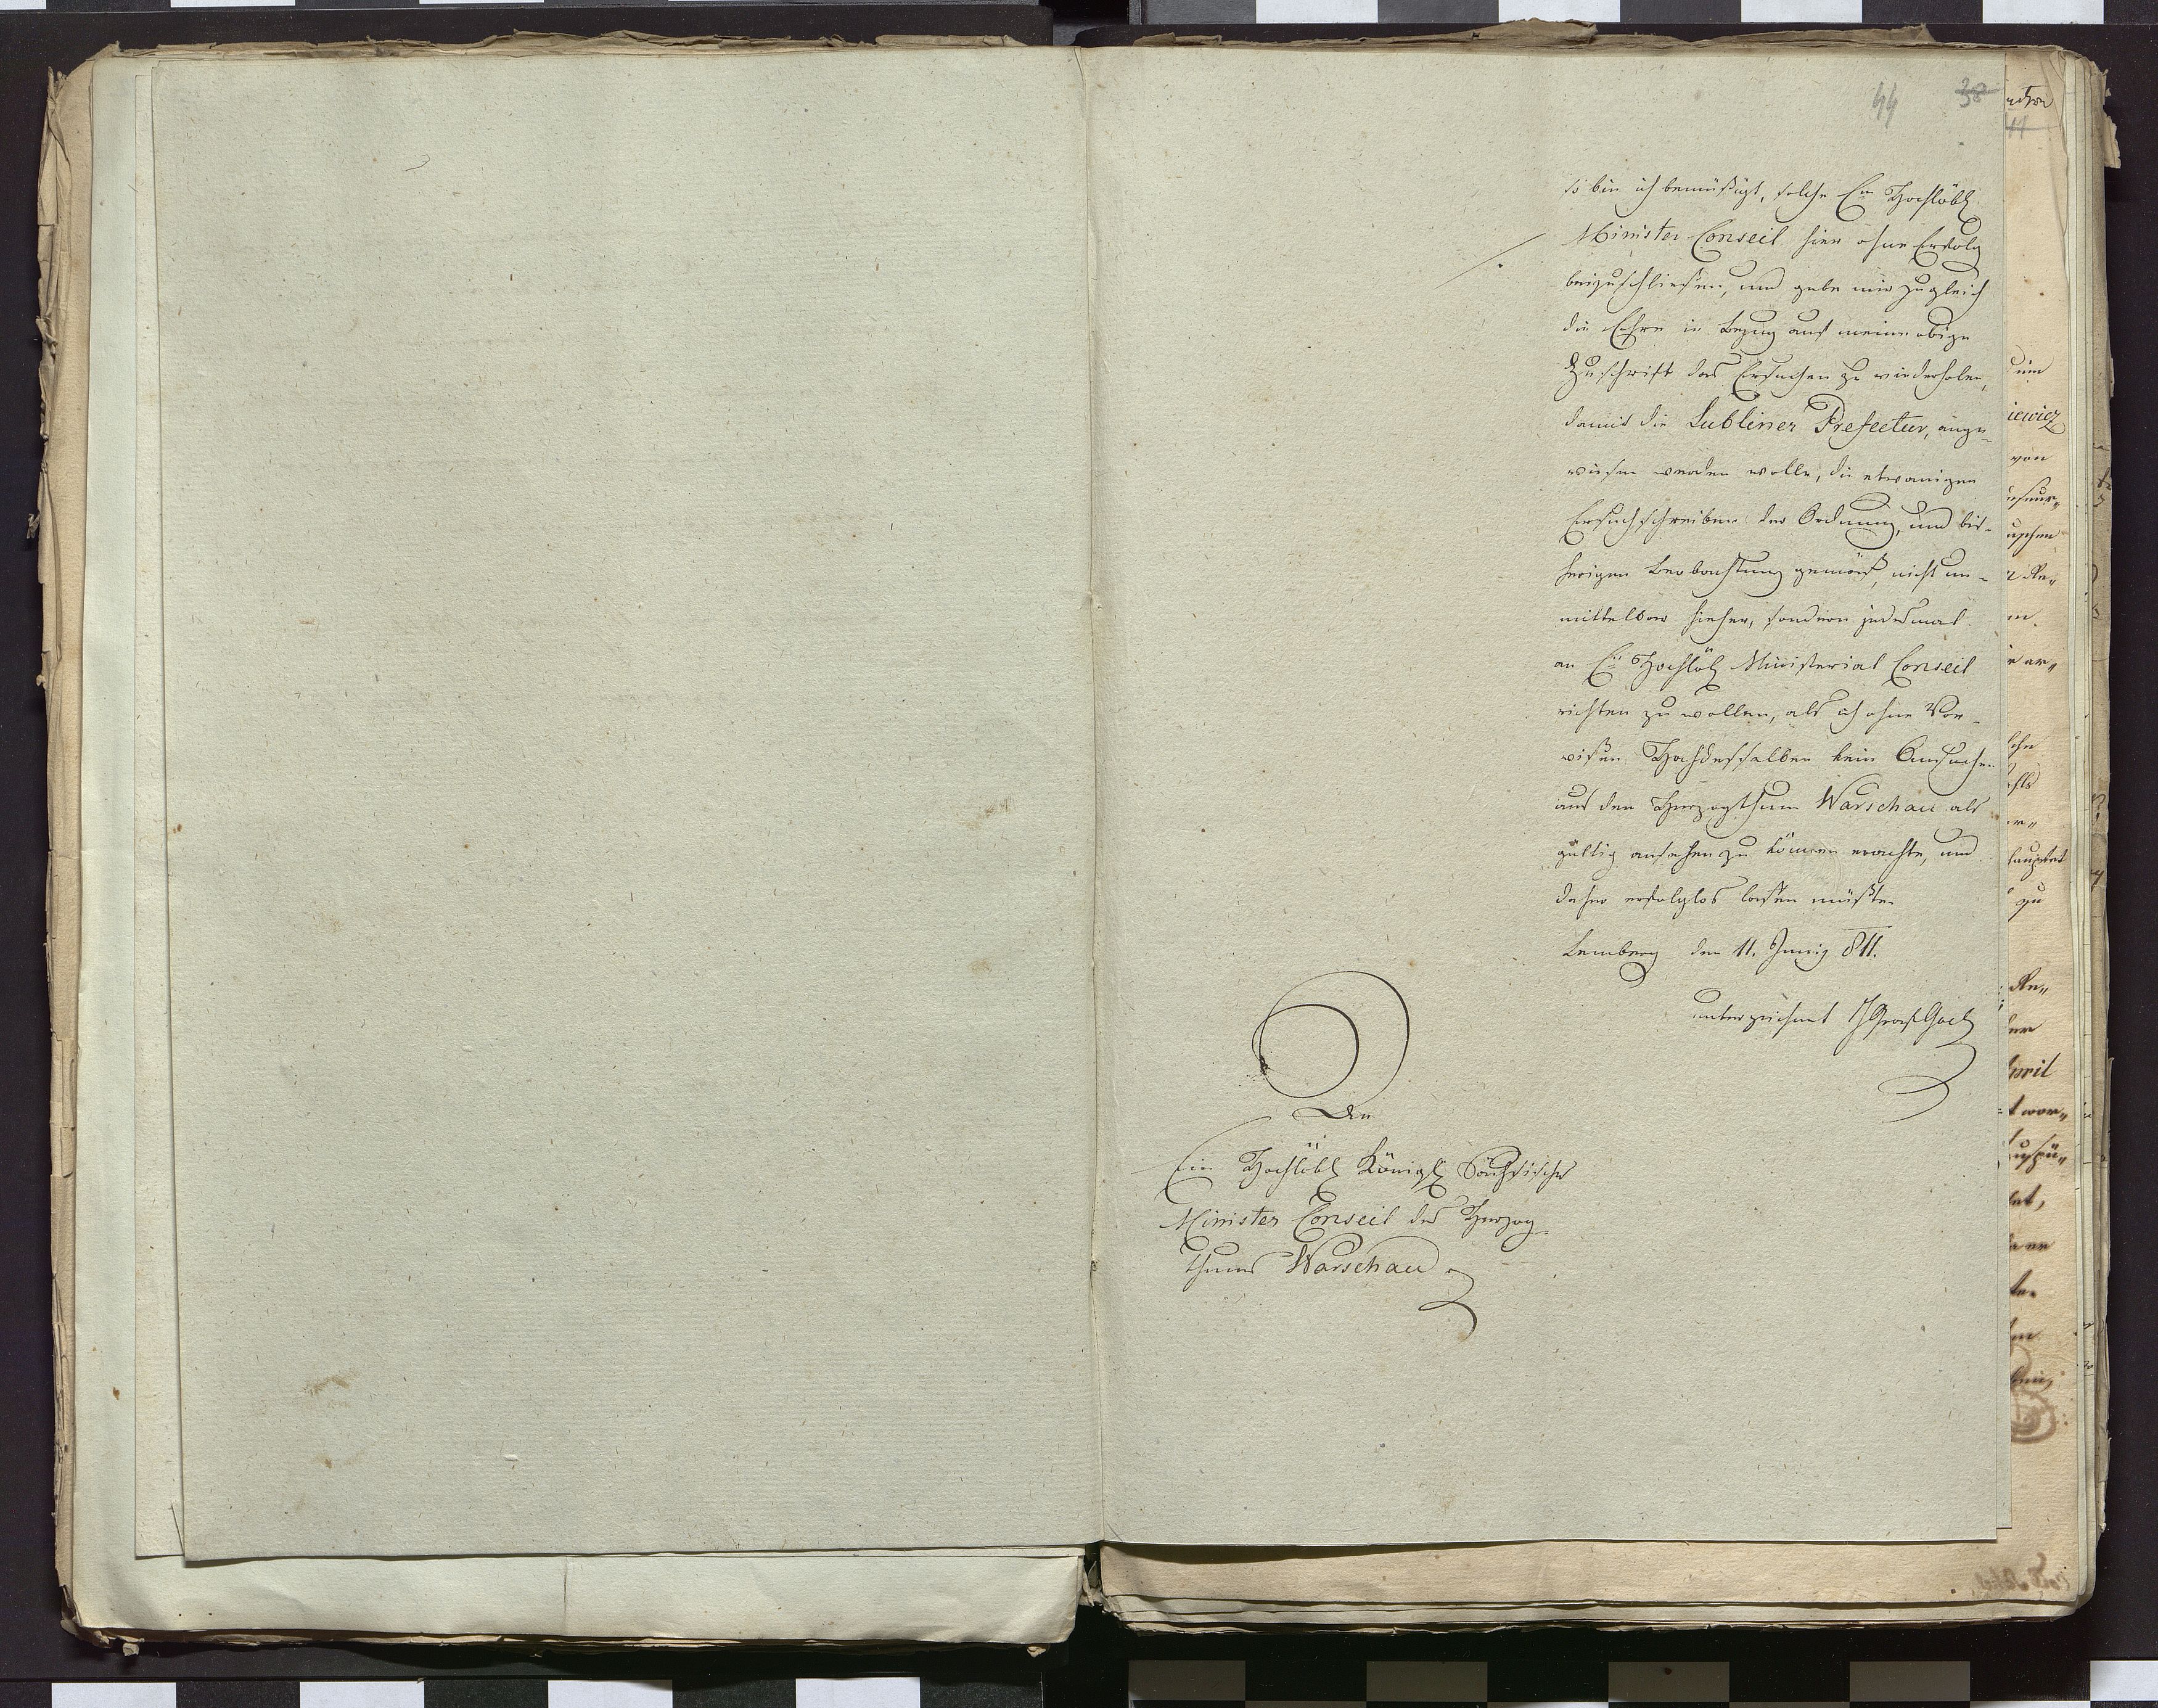 44 38
so bin ich bemüßigt, solche Ein Hochlöbl
Minister Conseil hier ohne Erfolg
beizuschließen, und gebe mir zugleich
die Ehre in Bezug auf meine obige
Zuschrift das Ersuchen zu wiederholen,
damit die Lubliner Prefectur, ange-
wiesen werden wolle, die etwanigen
Ersuchschreiben der Ordnung, und bis-
herigen Beobachtung gemäß, nicht un-
mittelbar hieher, sondern jedesmal
an Ein Hochlöbl Ministerial Conseil
richten zu wollen, als ich ohne Vor-
wißen Hochdesselben kein Ansuchen
aus dem Herzogthum Warschau als
gültig ansehen zu können erachte, und
daher erfolglos laßen müßte.
Lemberg den 11. Juny 811.
unterzeichnet Graf Goeß
An
Ein Hochlöbl Königl Sächsisches
Minister Conseil des Herzog-
thums Warschau